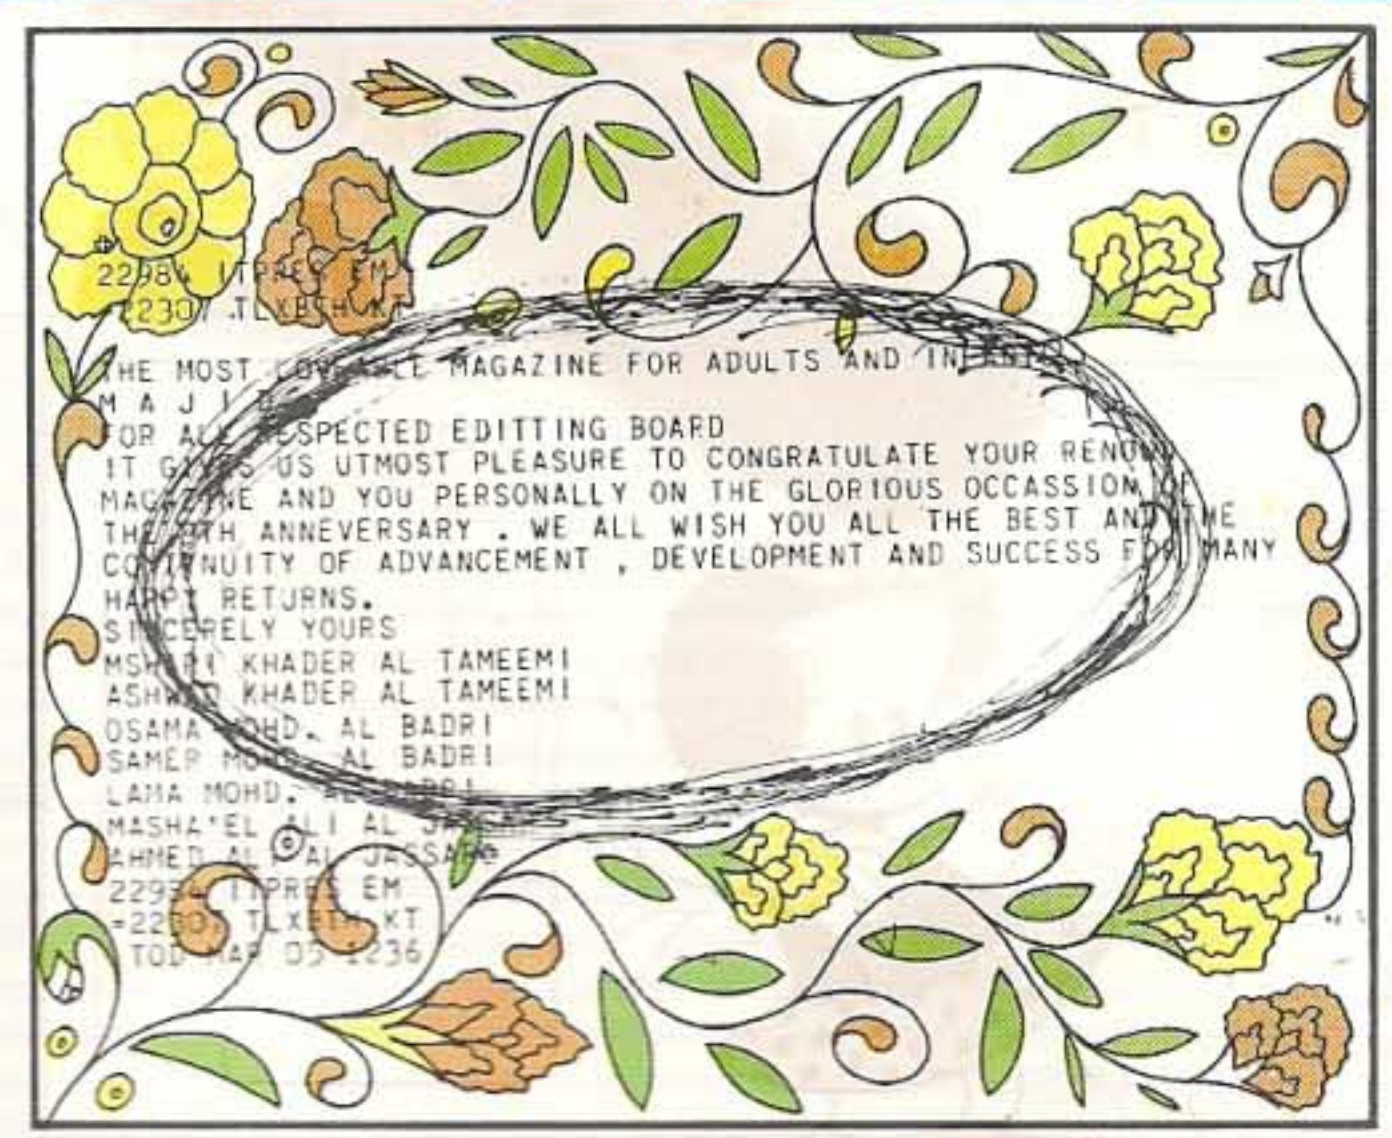 22984 ITPRES EM
22307 TLXBTH KT
THE MOST LOVEABLE MAGAZINE FOR ADULTS AND INFANTS
M A J I D
FOR ALL RESPECTED EDITTING BOARD
IT GIVES US UTMOST PLEASURE TO CONGRATULATE YOUR RENOWN
MAGAZINE AND YOU PERSONALLY ON THE GLORIOUS OCCASSION OF
THE TH ANNEVERSARY . WE ALL WISH YOU ALL THE BEST AND THE
CONTINUITY OF ADVANCEMENT , DEVELOPMENT AND SUCCESS FOR MANY
HAPPY RETURNS.
SINCERELY YOURS
MSHARI KHADER AL TAMEEMI
ASHWAD KHADER AL TAMEEMI
OSAMA MOHD. AL BADRI
SAMER MOHD. AL BADRI
LAMA MOHD. AL BADRI
MASHA'EL ALI AL
AHMED ALI AL JASSAR
22984 ITPRES EM
=22307 TLXBTH KT
TOD MAR 05 1236